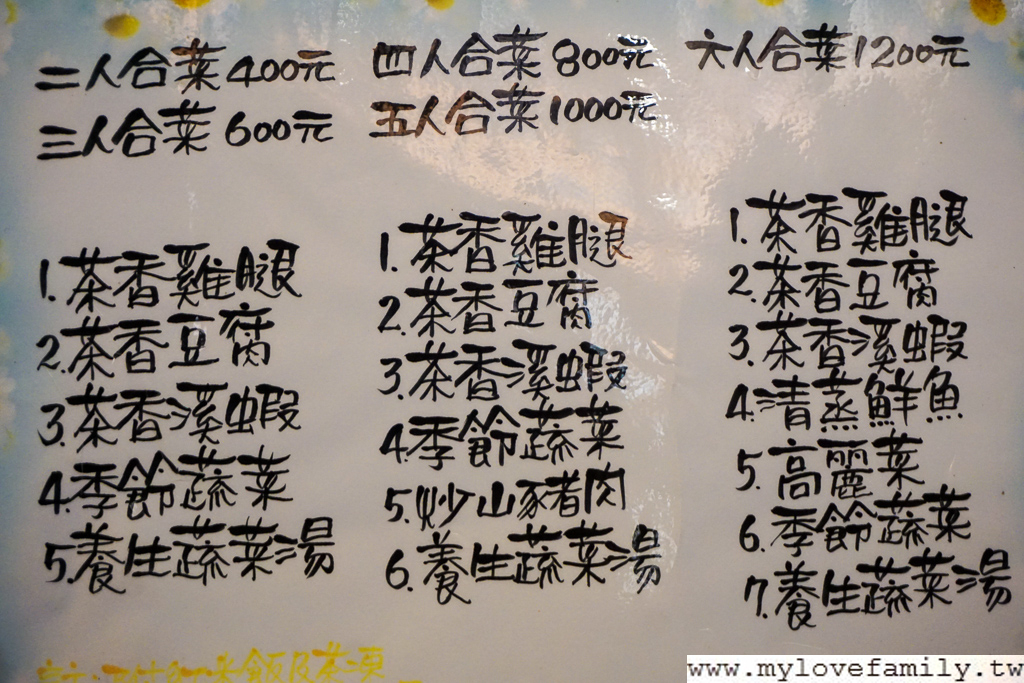 二人合菜400元
三人合菜600元
1.茶香雞腿
2.茶香豆腐
3.茶香溪蝦
4.季節蔬菜
5.養生蔬菜湯
四人合菜800元
五人合菜1000元
1.茶香雞腿
2.茶香豆腐
3.茶香溪蝦
4.季節蔬菜
5.炒山豬肉
6.養生蔬菜湯
六人合菜1200元
1.茶香雞腿
2.茶香豆腐
3.茶香溪蝦
4.清蒸鮮魚
5.高麗菜
6.季節蔬菜
7.養生蔬菜湯
www.mylovefamily.tw